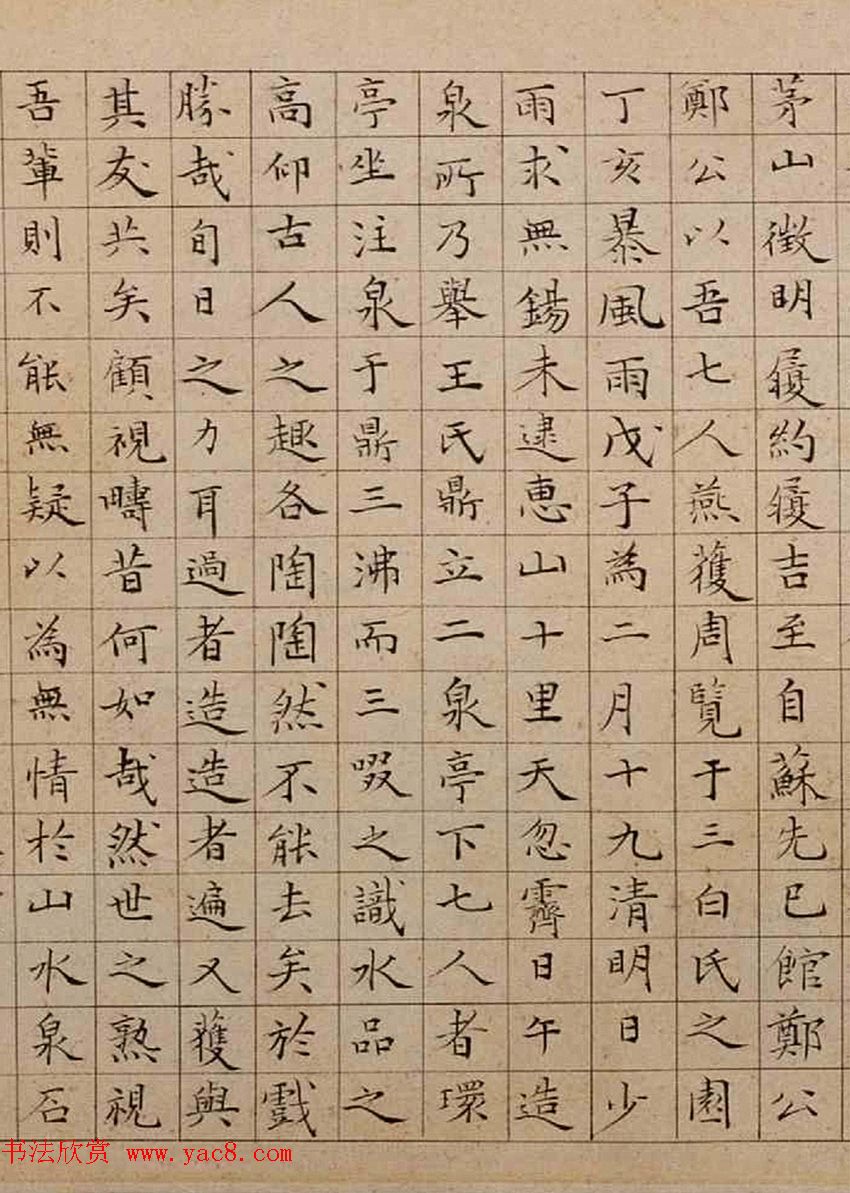 茅山徵明履約履吉至自蘇先已館鄭公
鄭公以吾七人燕蒦周覽于三白氏之園
丁亥暴風雨戊子為二月十九清明日少
雨求無錫未逮惠山十里天忽霽日午造
泉所乃舉王氏鼎立二泉亭下七人者環
亭坐注泉于鼎三沸而三啜之識水品之
高仰古人之趣各陶陶然不能去矣於戲
勝哉旬日之力耳過者造造者遍又蒦與
其友共矣顧視疇昔何如哉然世之熟視
吾輩則不能無疑以為無情於山水泉石
书法欣赏 www.yac8.com